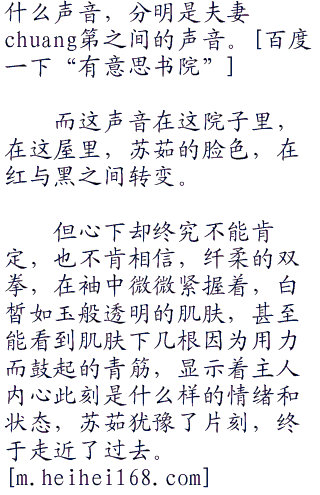 什么声音，分明是夫妻
chuang第之间的声音。[百度
一下“有意思书院”]
而这声音在这院子里，
在这屋里，苏茹的脸色，在
红与黑之间转变。
但心下却终究不能肯
定，也不肯相信，纤柔的双
拳，在袖中微微紧握着，白
皙如玉般透明的肌肤，甚至
能看到肌肤下几根因为用力
而鼓起的青筋，显示着主人
内心此刻是什么样的情绪和
状态，苏茹犹豫了片刻，终
于走近了过去。
[m.heihei168.com]